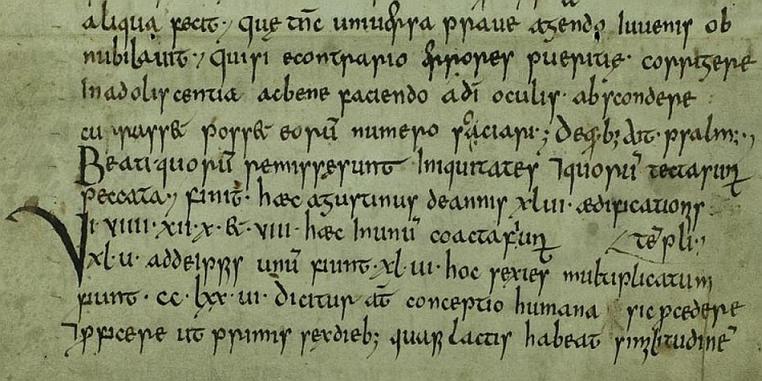 aliqua fecit, que tn̄c uniuersa praue agendo iuuenis ob
nubilauit, quisi econtrario priores pueritie · corrigere
In adoliscentia ac bene faciendo a di oculis · abscondere
curasset posset eorū numero sociari; de q·b; dt̄ psalm;
Beati quorū remisse sunt Iniquitates ⁊ quorū tecta sunt
peccata, finit · hæc agustinus de annis xlui · ædificationis
UI · uiiii · xii · x · & · uiii · hæc In unū coacta sun̄t templi
xl·u· adde ipsis unū fiunt · xl·ui · hoc sexies multiplicatum
fiunt · cc · lxx · ui · dicitur aū conceptio humana sic pcedere
⁊ pficere ut primis sex dieb; quasi lactis habeat similitudinē